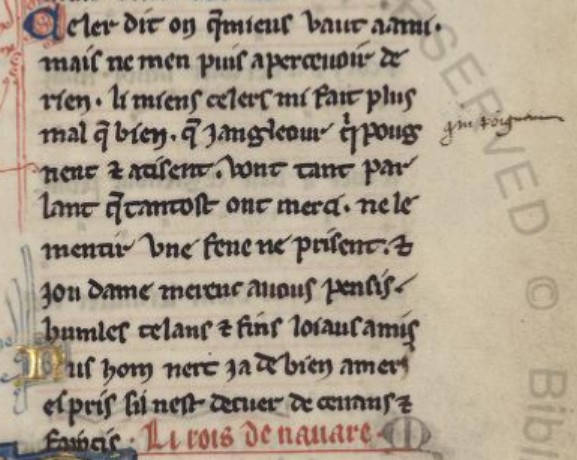 Celer dit on q̃ mieus vaut a ami·
mais ne men puis apercevoir de
rien· li miens celers mi fait plus
mal q̃ bien· q̃ Jangleour q̇ poug
nent ⁊ atisent· vont tant par
lant q̃ tantost ont merci· ne le
mentir vne feue ne prisent·⁊
Jou dame merenc auous pensis·
humles celans ⁊ fins loiaus amis
Nus hom nert ja de bien amer
espris sil nest de cuer decevans ⁊
Li rois de navare·
RESERVED © Bibl